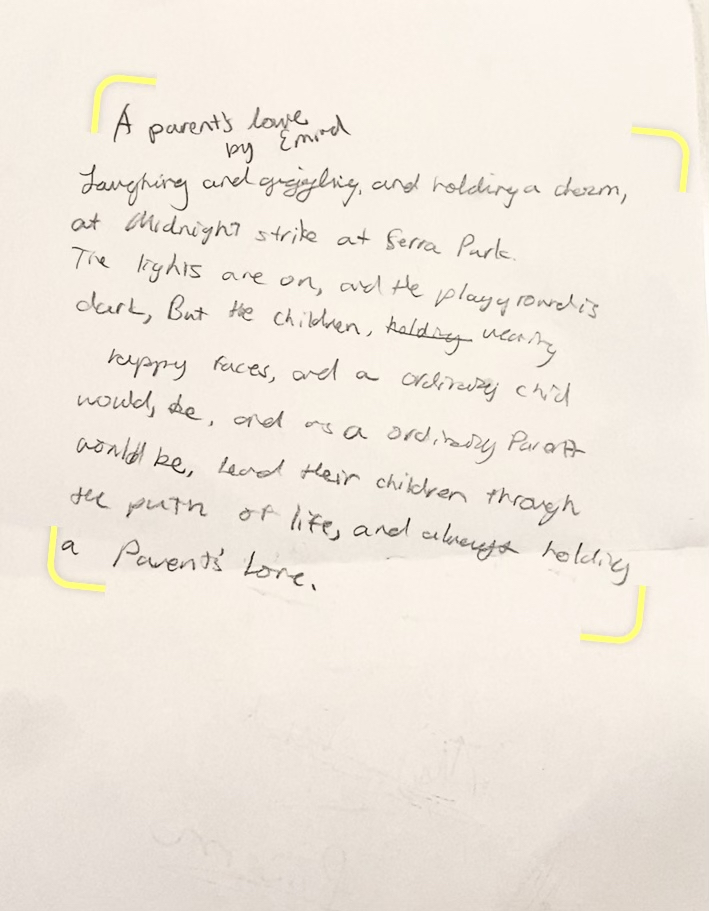 A parent's love
by Emird
Laughing and giggling, and holding a charm,
at Midnight strike at Serra Park.
The lights are on, and the playground is
dark, But the children, holding wearing
happy faces, and a ordinary child
would, be, and as a ordinary Parent
would be, lead their children through
the path of life, and always holding
a Parent's Love.